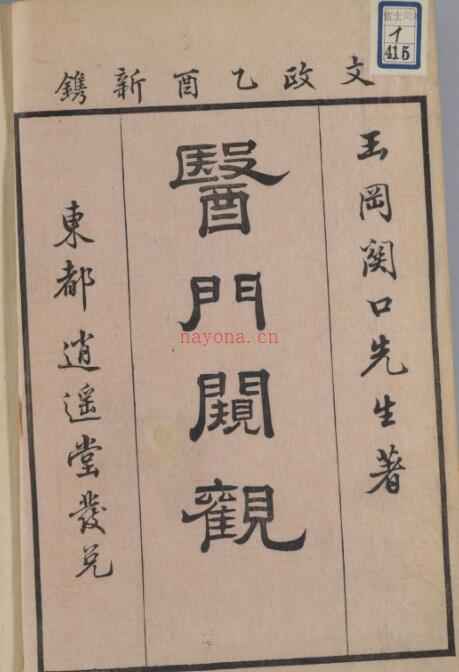 富士川本
イ
415
文政乙酉新鐫
玉岡関口先生著
醫門闚觀
東都逍遥堂發兌
nayona.cn